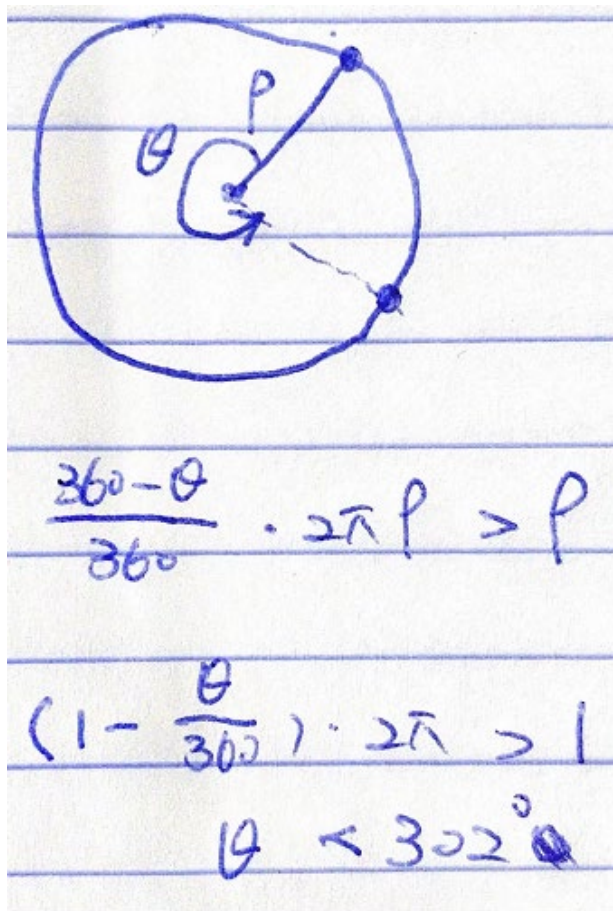 ρ
θ
(360-θ)/360 · 2πρ > ρ
(1 - θ/360) · 2π > 1
θ < 302°